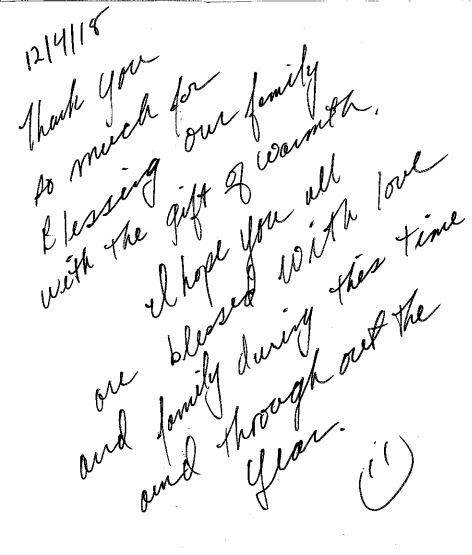 12/4/18
Thank you
so much for
Blessing our family
with the gift of warmth.
I hope you all
are blessed with love
and family during this time
and through out the
year.